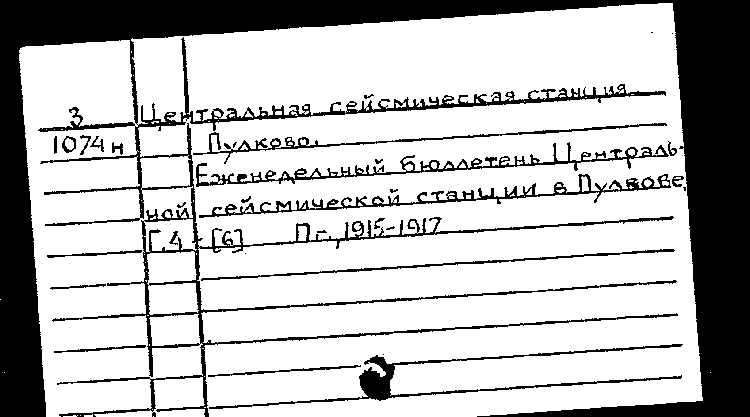 З Центральная сейсмическая станция
1074н Пулково.
Еженедельный бюллетень Централь-
ной сейсмической станции в Пулкове.
Г.4 - [6] Пг., 1915-1917